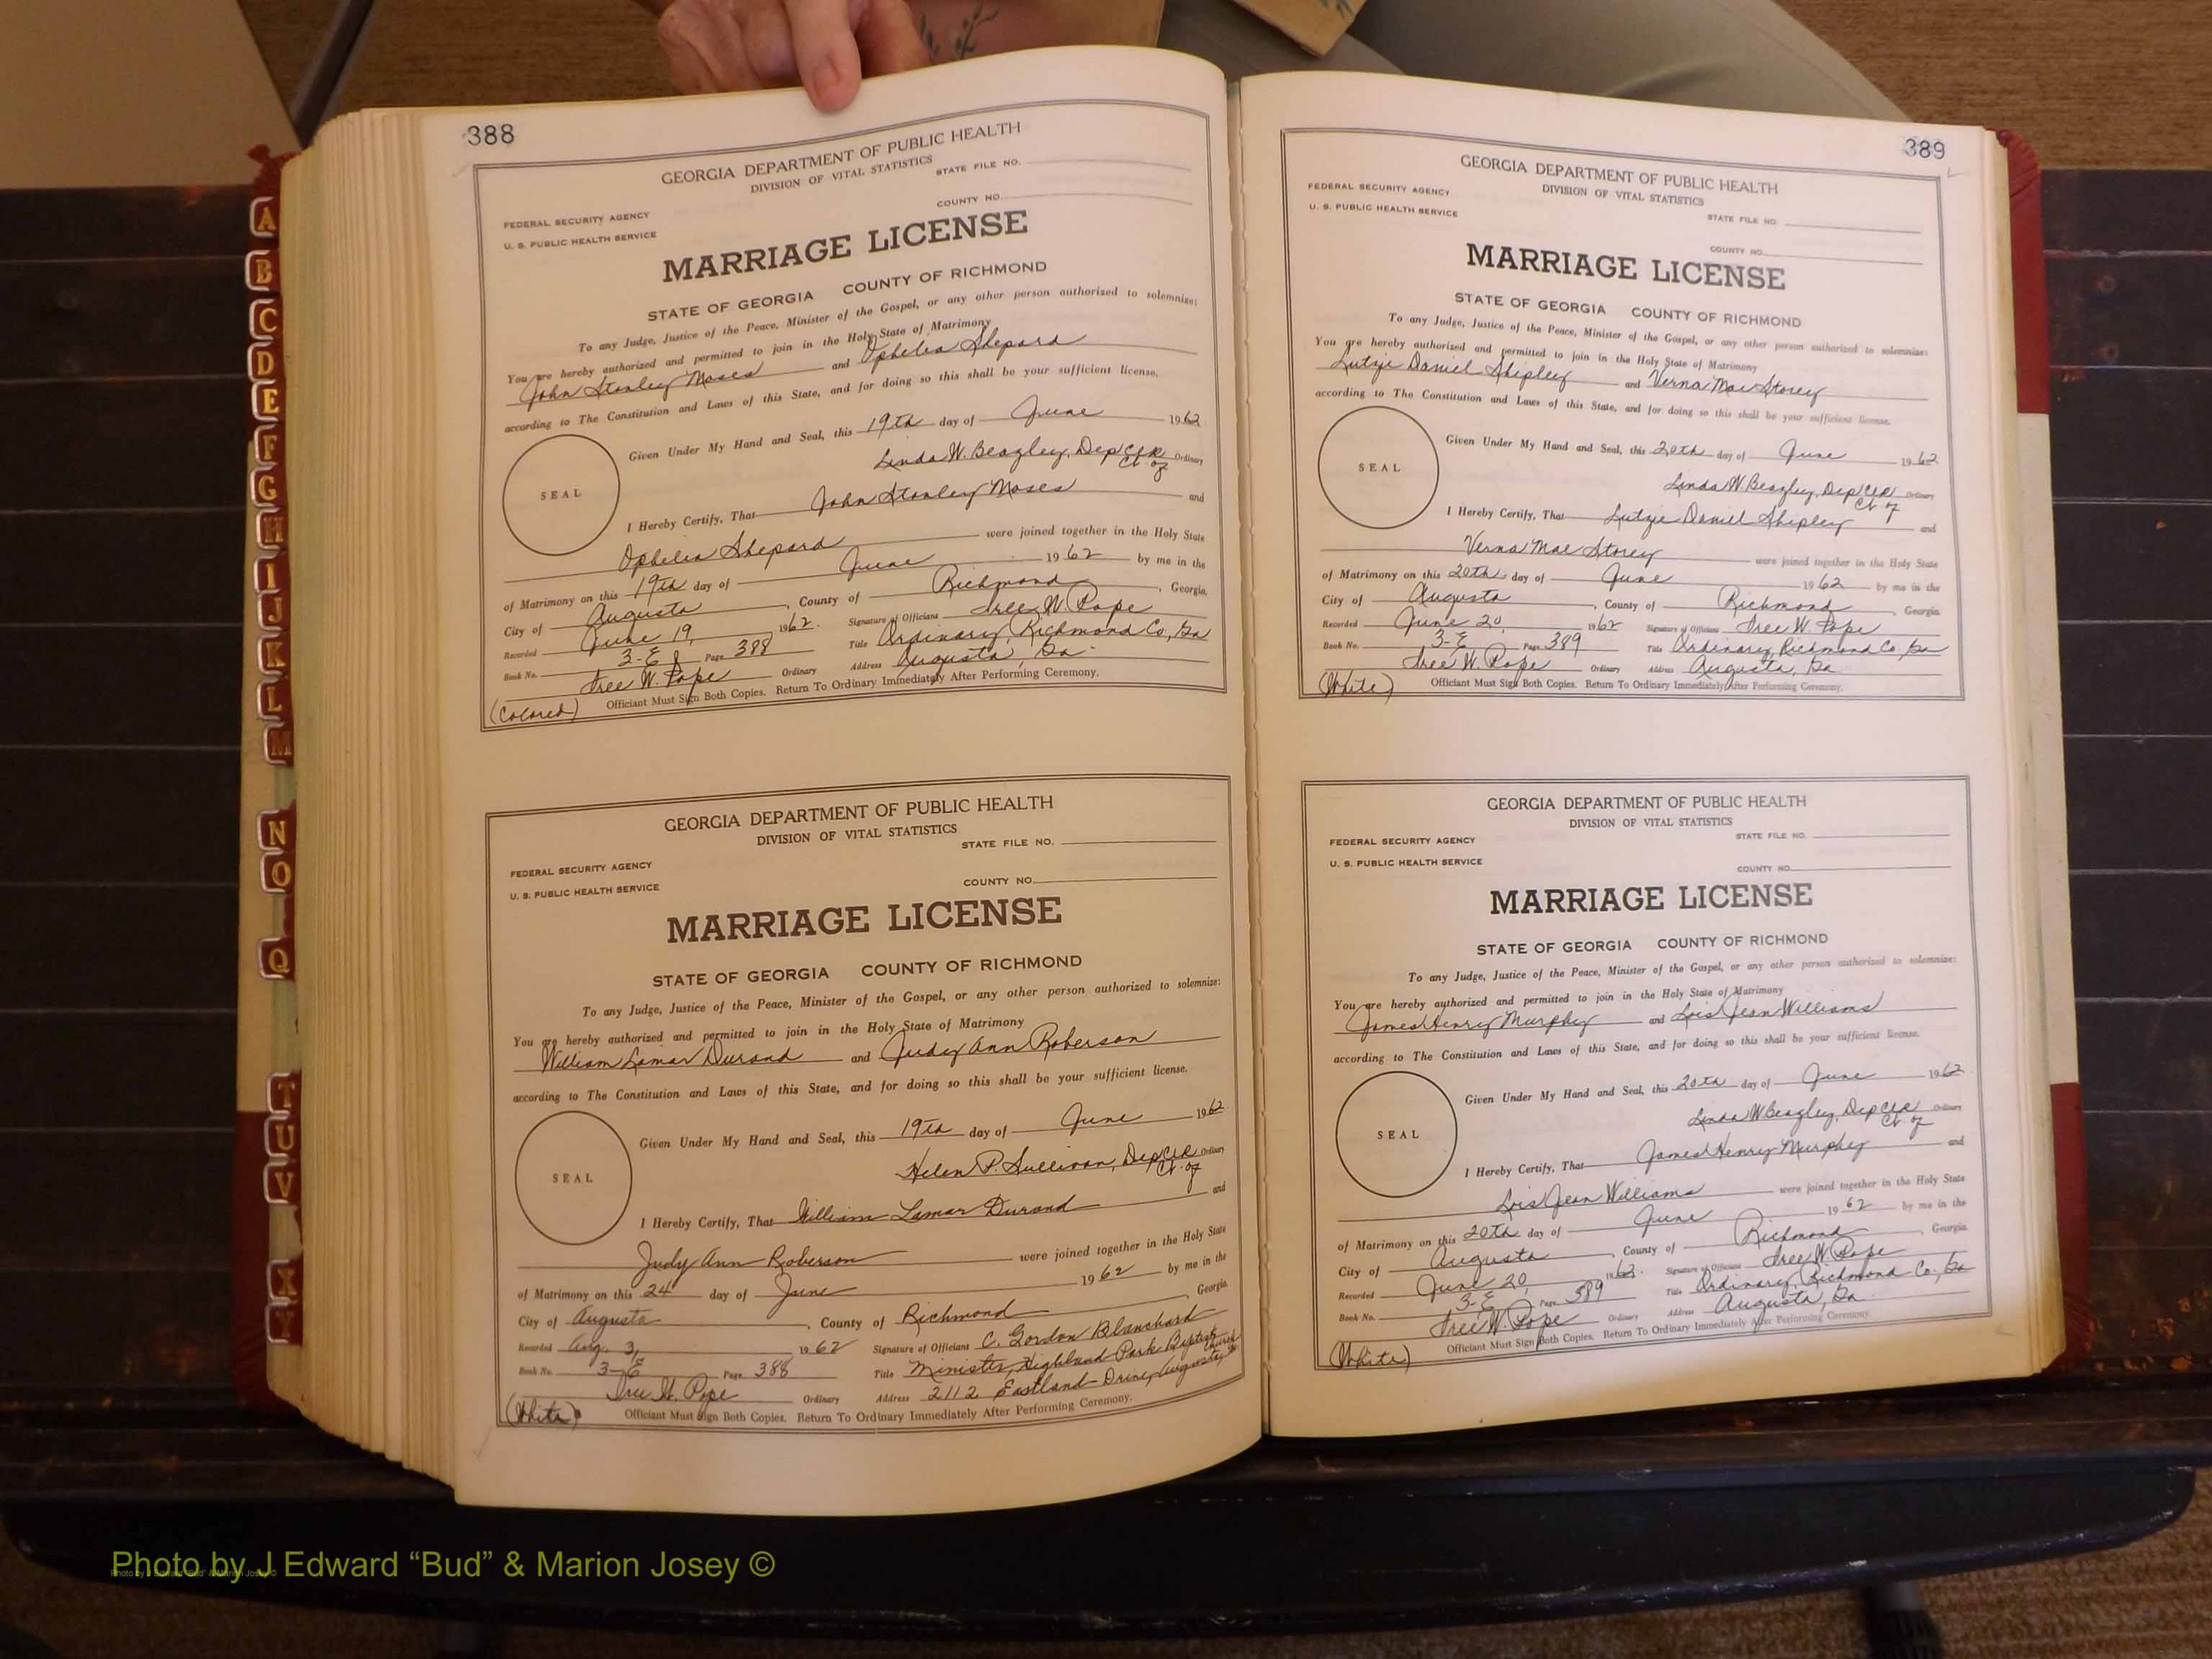 388
GEORGIA DEPARTMENT OF PUBLIC HEALTH
DIVISION OF VITAL STATISTICS
STATE FILE NO.
FEDERAL SECURITY AGENCY
COUNTY NO.
U. S. PUBLIC HEALTH SERVICE
MARRIAGE LICENSE
STATE OF GEORGIA COUNTY OF RICHMOND
To any Judge, Justice of the Peace, Minister of the Gospel, or any other person authorized to solemnize:
You are hereby authorized and permitted to join in the Holy State of Matrimony
John Stanley Moses and Ophelia Shepard
according to The Constitution and Laws of this State, and for doing so this shall be your sufficient license.
Given Under My Hand and Seal, this 19th day of June 1962
Linda W. Beazley, Dep Clk Ordinary
Ct. of
SEAL
I Hereby Certify, That John Stanley Moses and
Ophelia Shepard were joined together in the Holy State
of Matrimony on this 19th day of June 1962 by me in the
City of Augusta, County of Richmond, Georgia.
Recorded June 19, 1962. Signature of Officiant Tree W. Pope
Book No. 3-E Page 388 Title Ordinary, Richmond Co, Ga
Tree W. Pope Ordinary Address Augusta, Ga.
(Colored) Officiant Must Sign Both Copies. Return To Ordinary Immediately After Performing Ceremony.
GEORGIA DEPARTMENT OF PUBLIC HEALTH
DIVISION OF VITAL STATISTICS
STATE FILE NO.
FEDERAL SECURITY AGENCY
COUNTY NO.
U. S. PUBLIC HEALTH SERVICE
MARRIAGE LICENSE
STATE OF GEORGIA COUNTY OF RICHMOND
To any Judge, Justice of the Peace, Minister of the Gospel, or any other person authorized to solemnize:
You are hereby authorized and permitted to join in the Holy State of Matrimony
William Lamar Durand and Judy Ann Roberson
according to The Constitution and Laws of this State, and for doing so this shall be your sufficient license.
Given Under My Hand and Seal, this 19th day of June 1962
Helen P. Sullivan, Dep Clk Ordinary
Ct. of
SEAL
I Hereby Certify, That William Lamar Durand and
Judy Ann Roberson were joined together in the Holy State
of Matrimony on this 24 day of June 1962 by me in the
City of Augusta, County of Richmond Georgia.
Recorded Aug. 3, 1962 Signature of Officiant C. Gordon Blanchard
Book No. 3-E Page 388 Title Minister, Highland Park Baptist Church
Tree W. Pope Ordinary Address 2112 Eastland Drive, Augusta, Ga.
(White) Officiant Must Sign Both Copies. Return To Ordinary Immediately After Performing Ceremony.
389
GEORGIA DEPARTMENT OF PUBLIC HEALTH
DIVISION OF VITAL STATISTICS
FEDERAL SECURITY AGENCY
STATE FILE NO.
U. S. PUBLIC HEALTH SERVICE
COUNTY NO.
MARRIAGE LICENSE
STATE OF GEORGIA COUNTY OF RICHMOND
To any Judge, Justice of the Peace, Minister of the Gospel, or any other person authorized to solemnize:
You are hereby authorized and permitted to join in the Holy State of Matrimony
Lutzie Daniel Shipley and Verna Mae Storey
according to The Constitution and Laws of this State, and for doing so this shall be your sufficient license.
Given Under My Hand and Seal, this 20th day of June 1962
Linda W. Beazley, Dep Clk Ordinary
Ct. of
SEAL
I Hereby Certify, That Lutzie Daniel Shipley and
Verna Mae Storey were joined together in the Holy State
of Matrimony on this 20th day of June 1962 by me in the
City of Augusta, County of Richmond, Georgia.
Recorded June 20, 1962 Signature of Officiant Tree W. Pope
Book No. 3-E Page 389 Title Ordinary, Richmond Co, Ga
Tree W. Pope Ordinary Address Augusta, Ga.
(White) Officiant Must Sign Both Copies. Return To Ordinary Immediately After Performing Ceremony.
GEORGIA DEPARTMENT OF PUBLIC HEALTH
DIVISION OF VITAL STATISTICS
STATE FILE NO.
FEDERAL SECURITY AGENCY
U. S. PUBLIC HEALTH SERVICE
COUNTY NO.
MARRIAGE LICENSE
STATE OF GEORGIA COUNTY OF RICHMOND
To any Judge, Justice of the Peace, Minister of the Gospel, or any other person authorized to solemnize:
You are hereby authorized and permitted to join in the Holy State of Matrimony
James Henry Murphy and Lois Jean Williams
according to The Constitution and Laws of this State, and for doing so this shall be your sufficient license.
Given Under My Hand and Seal, this 20th day of June 1962
Linda W Beazley, Dep Clk Ordinary
Ct. of
SEAL
I Hereby Certify, That James Henry Murphy and
Lois Jean Williams were joined together in the Holy State
of Matrimony on this 20th day of June 1962 by me in the
City of Augusta, County of Richmond, Georgia.
Recorded June 20, 1962. Signature of Officiant Tree W. Pope
Book No. 3-E Page 389 Title Ordinary, Richmond Co., Ga
Tree W. Pope Ordinary Address Augusta, Ga.
(White) Officiant Must Sign Both Copies. Return To Ordinary Immediately After Performing Ceremony.
A
B
C
D
E
F
G
H
I
J
K
L
M
N
O
Q
T
U
V
X
Y
Photo by J Edward “Bud” & Marion Josey ©
Photo by J Edward “Bud” & Marion Josey ©